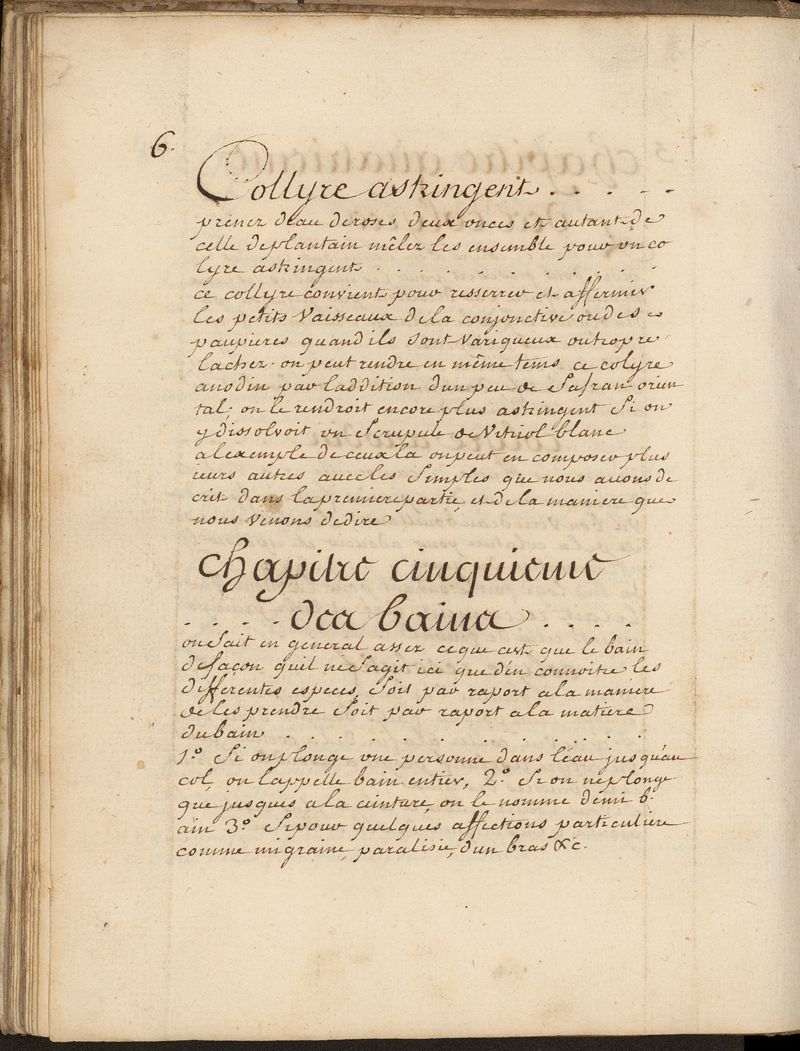 6.
Collyre astringent . . . . .
prenez deau deroses deux onces et autant de
celle deplantain mêlez les ensemble pour un co
lyre astringent . . . . . . . . .
ce collyre convient pour resserrer et affermir
les petits Vaisseaux de la conjonctive ou des
paupieres quand ils sont Variqueux ou trop re
lachez. on peut rendre en même tems ce colyre
anodin par laddition dun peu de Safran orien
tal; on le rendroit encore plus astringent Si on
y dissolvoit un Scrupule de Vitriol blanc
alexemple de ceux la on peut en composer plus
ieurs autres avec les Simples que nous avons de
crit dans la premiere partie, et de la maniere que
nous Venons de dire
Chapitre cinquieme
. . . . des bains . . . .
on Sait en general assez ce que cest que le bain
de façon quil ne Sagit ici que den connoitre les
differentes especes, Soit par raport a la maniere
de les prendre Soit par raport a la matiere
du bain . . . . . . . . . . .
1.º Si on plonge une personne dans leau jusqu'au
col, on lappelle bain entier, 2.º Si on ne plonge
que jusques a la ceinture, on le nomme demi b.
ain 3.º Si pour quelques affections particuliere
comme migraine, paralisie, dun bras &c.